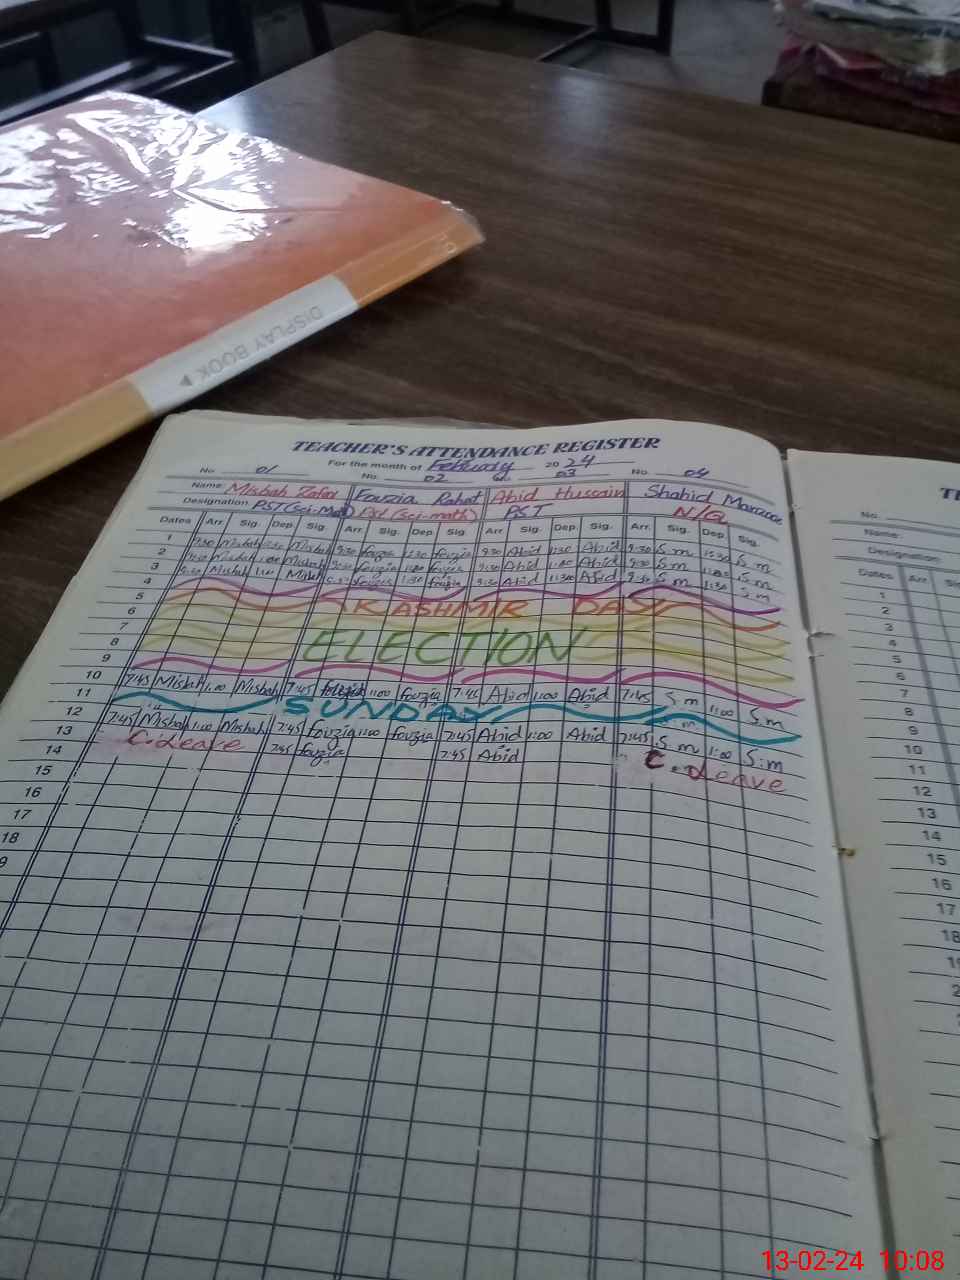 DISPLAY BOOK
TEACHER'S ATTENDANCE REGISTER
For the month of February 2024
No. 01 No. 02 03 No. 04
Name: Misbah Zafar Fouzia Rahat Abid Hussain Shahid
Designation. PST (Sci-Math) Pst (sci-math) PST N/Q
Dates Arr. Sig. Dep. Sig. Arr. Sig. Dep. Sig. Arr Sig. Dep. Sig. Arr. Sig. Dep. Sig.
1 9:30 Misbah Misbah 9:30 fouzia 1:30 fouzia 9:30 Abid 1:30 Abid 9:30 S.m 1:30 S.m
2 Misbah 1:00 Misbah fouzia fouzia 9:30 Abid Abid 9:30 S.m S.m
3 9:30 Misbah Misbah fouzia 1:30 fouzia 9:30 Abid Abid 9:30 S.m 11:30 S.m
4
5 KASHMIR DAY
6
7 ELECTION
8
9
10 7:45 Misbah 1:00 Misbah 7:45 fouzia 1:00 fouzia 7:45 Abid 1:00 Abid 7:45 S.m 1:00 S.m
11 SUNDAY
12 7:45 Misbah 1:00 Misbah 7:45 fouzia 1:00 fouzia 7:45 Abid 1:00 Abid 7:45 S.m 1:00 S.m
13 C.Leave 7:45 fouzia 7:45 Abid C.Leave
14
15
16
17
18
9
No.
Name:
Designation
Dates Arr
1
2
3
4
5
6
7
8
9
10
11
12
13
14
15
16
17
18
13-02-24 10:08